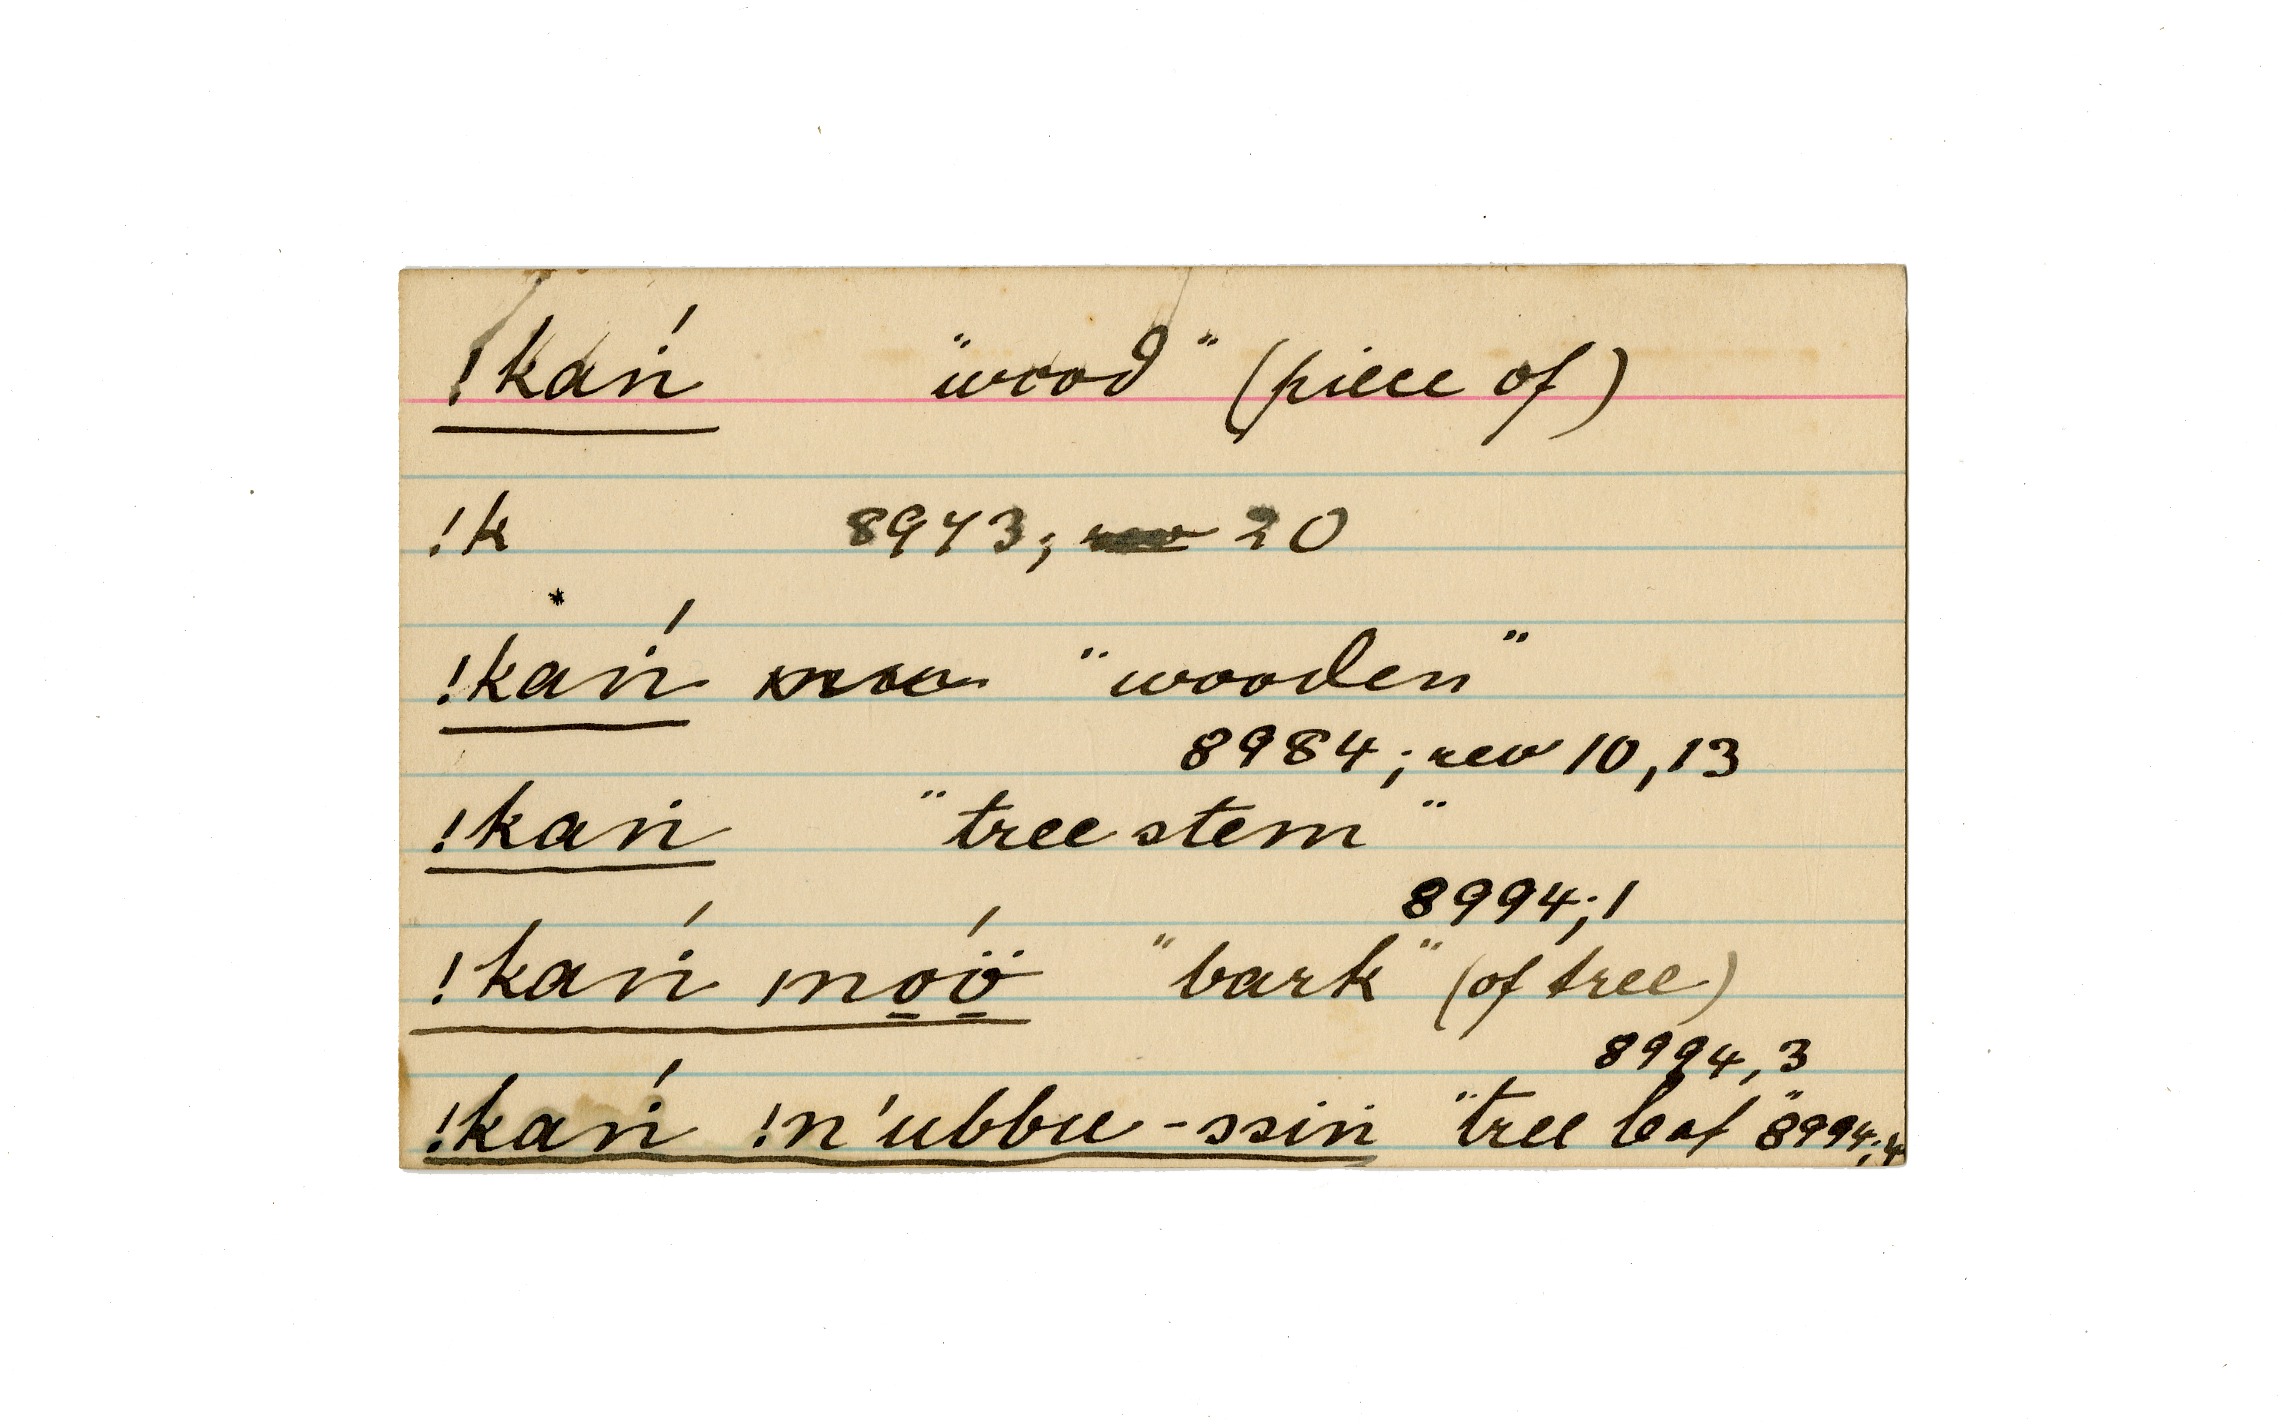 !kaṅ́ "wood" (piece of)
!k 8973; 20
!kaṅ́ "wooden"
8984; rev 10, 13
!kaṅ "tree stem"
8994; 1
!kaṅ́ mö̱ó̱̈ "bark" (of tree)
8994, 3
!kaṅ́ !n'ubbu-ssiṅ "tree leaf" 8994; 4